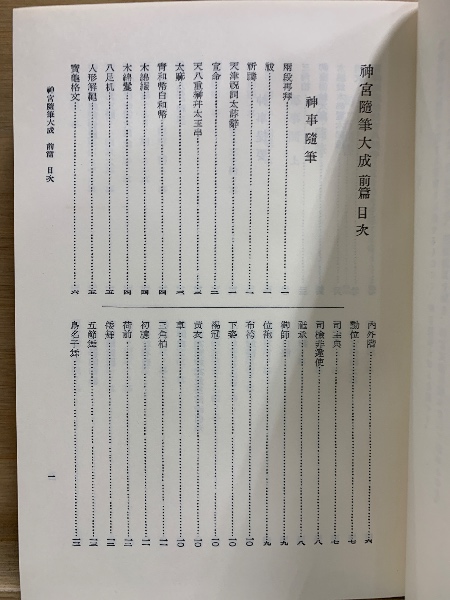 神宮隨筆大成 前篇 目次
神事隨筆
兩段再拜……一
祓……一
祈禱……一
天津祝詞太諄辭……一
宣命……二
天八重榊并太玉串……三
太麻……三
青和幣白和幣……四
木綿襁……四
木綿鬘……四
八足机……五
人形解繩……五
寶龜格文……六
內外階……六
勳位……七
司主典……七
司檢非違使……八
御師……九
位袍……九
布袴……一〇
下襲……一〇
揚冠……一〇
黃衣……一〇
草……一〇
三角柏……一一
初穗……一一
荷前……一二
倭舞……一二
五節舞……一三
鳥名子舞……一三
神宮隨筆大成 前篇 目次
一